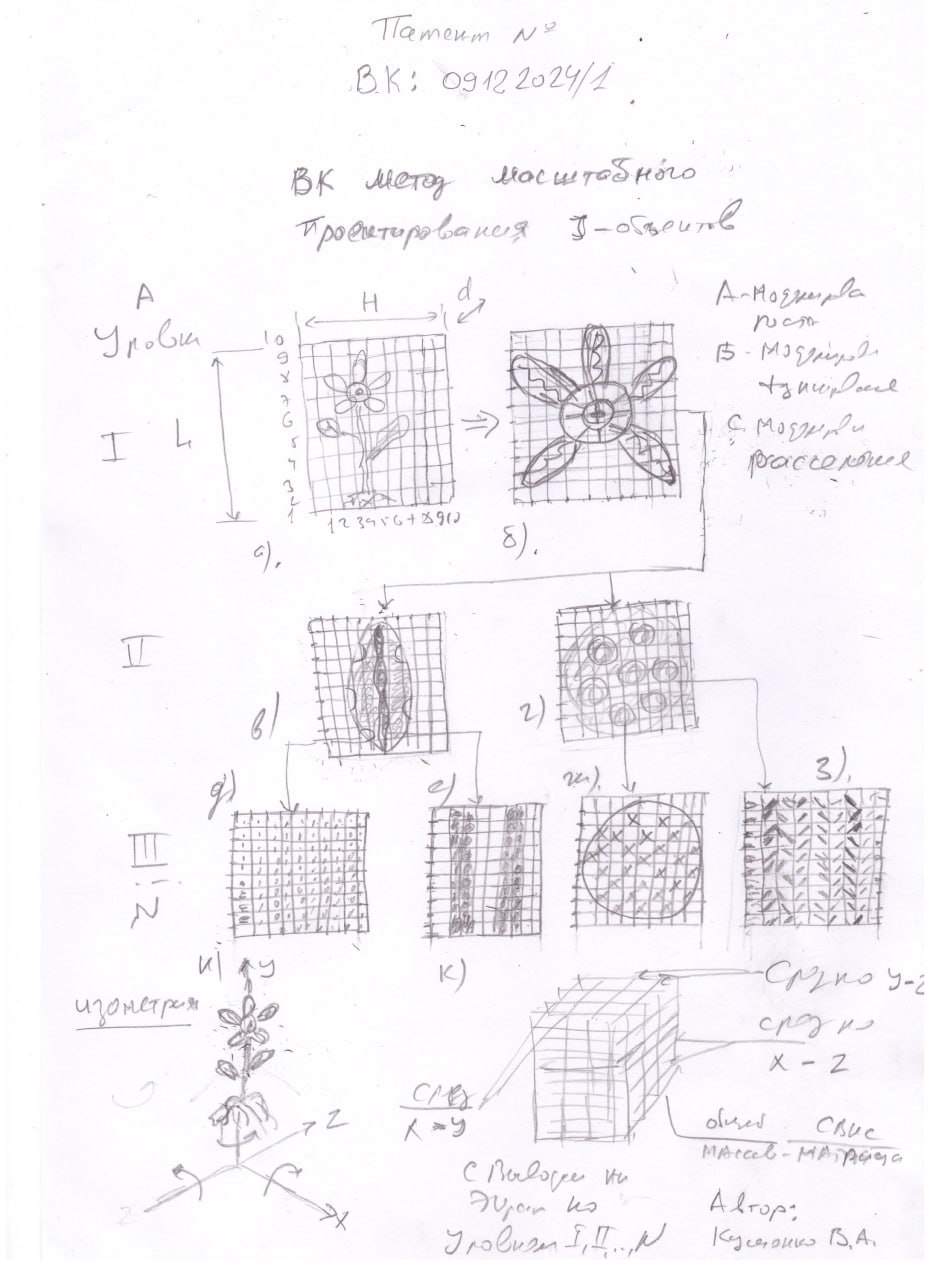 Патент №
ВК: 09122024/1
ВК метод масштабного
Проектирования J-объектов
А
Уровни
I
L
H
d
10
9
8
7
6
5
4
3
2
1
1 2 3 4 5 6 7 8 9 10
а).
б).
А-Моделирова
роста
В - Моделиров
С Моделиров
расселения
II
в)
г)
III
N
д)
е)
ж).
з).
и)
у
изометрия
Z
Z
X
к)
Срез по У-Z
срез по
X - Z
срез
X - У
общий
массив - Матрица
С Выводом на
Экран по
Уровням I, II,..,N
Автор:
В.А.